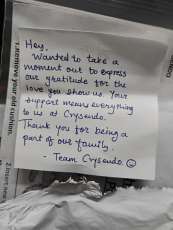 Hey,
Wanted to take a
moment out to express
our gratitude for the
love you show us. Your
support means everything
to us at Crysendo.
Thank you for being a
part of our family.
- Team Crysendo. ☺
1. Remove your old cushion.